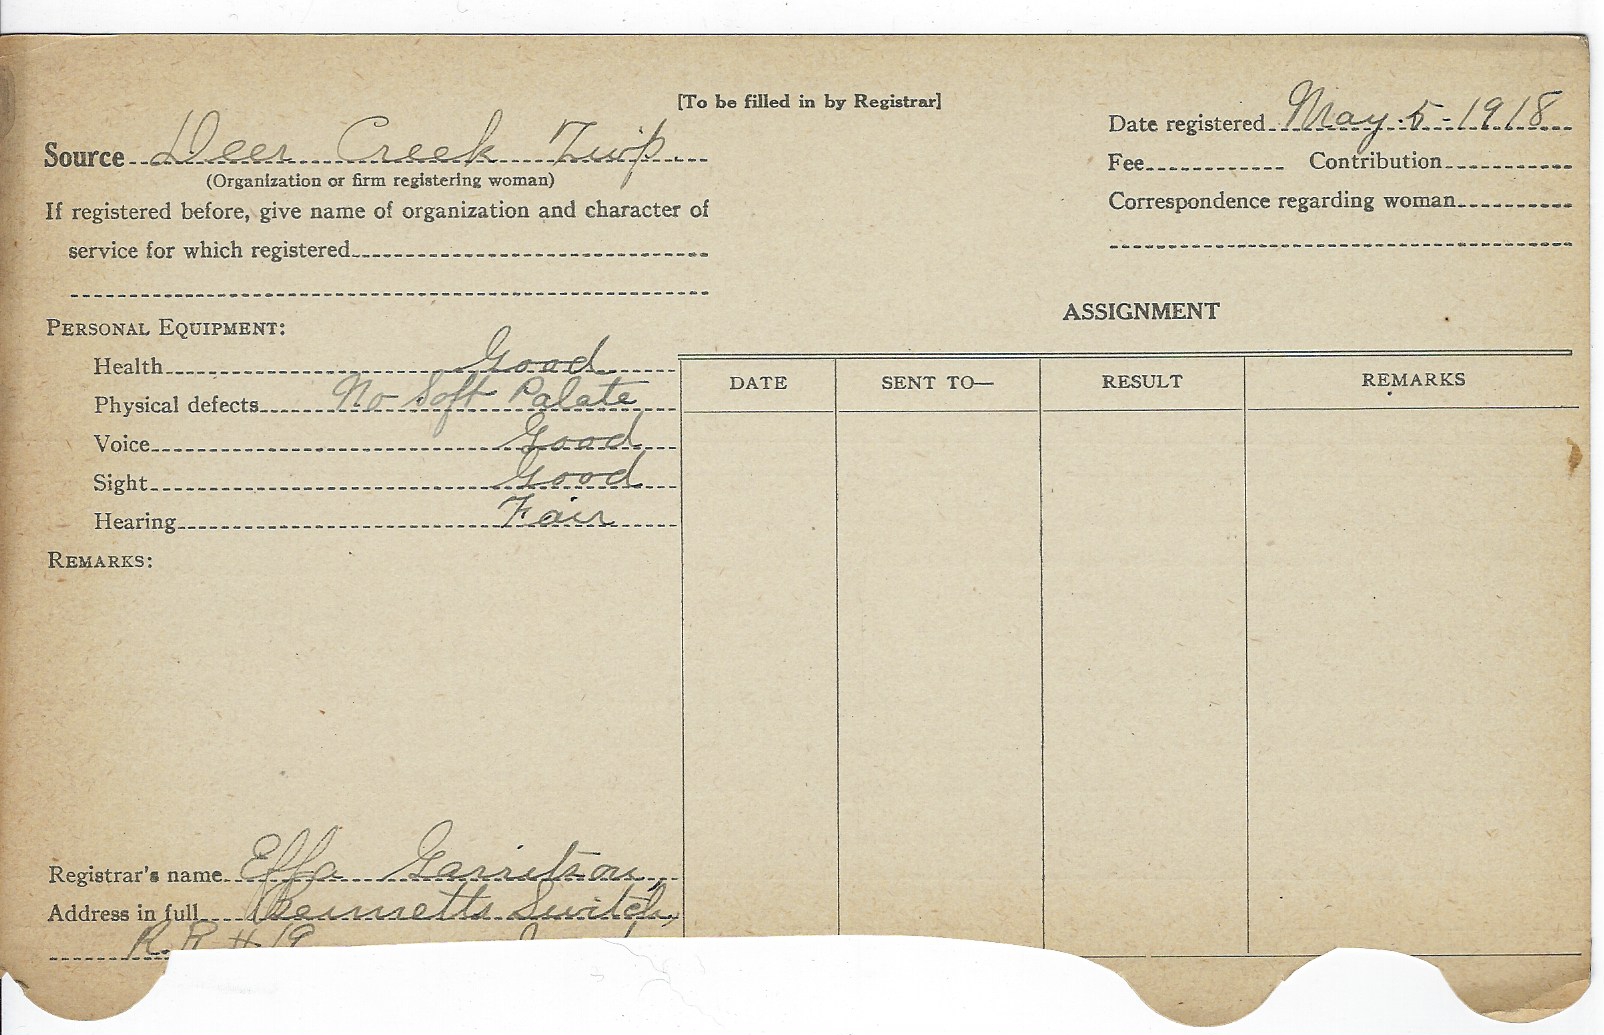 [To be filled in by Registrar]
Source Deer Creek Twp.
(Organization or firm registering woman)
If registered before, give name of organization and character of
service for which registered
Date registered May 5-1918
Fee Contribution
Correspondence regarding woman
PERSONAL EQUIPMENT:
Health Good
Physical defects No Soft Palate
Voice Good
Sight Good
Hearing Fair
REMARKS:
ASSIGNMENT
DATE SENT TO— RESULT REMARKS
Registrar's name Effa Garritson,
Address in full Bennetts Switch,
R.R # 19